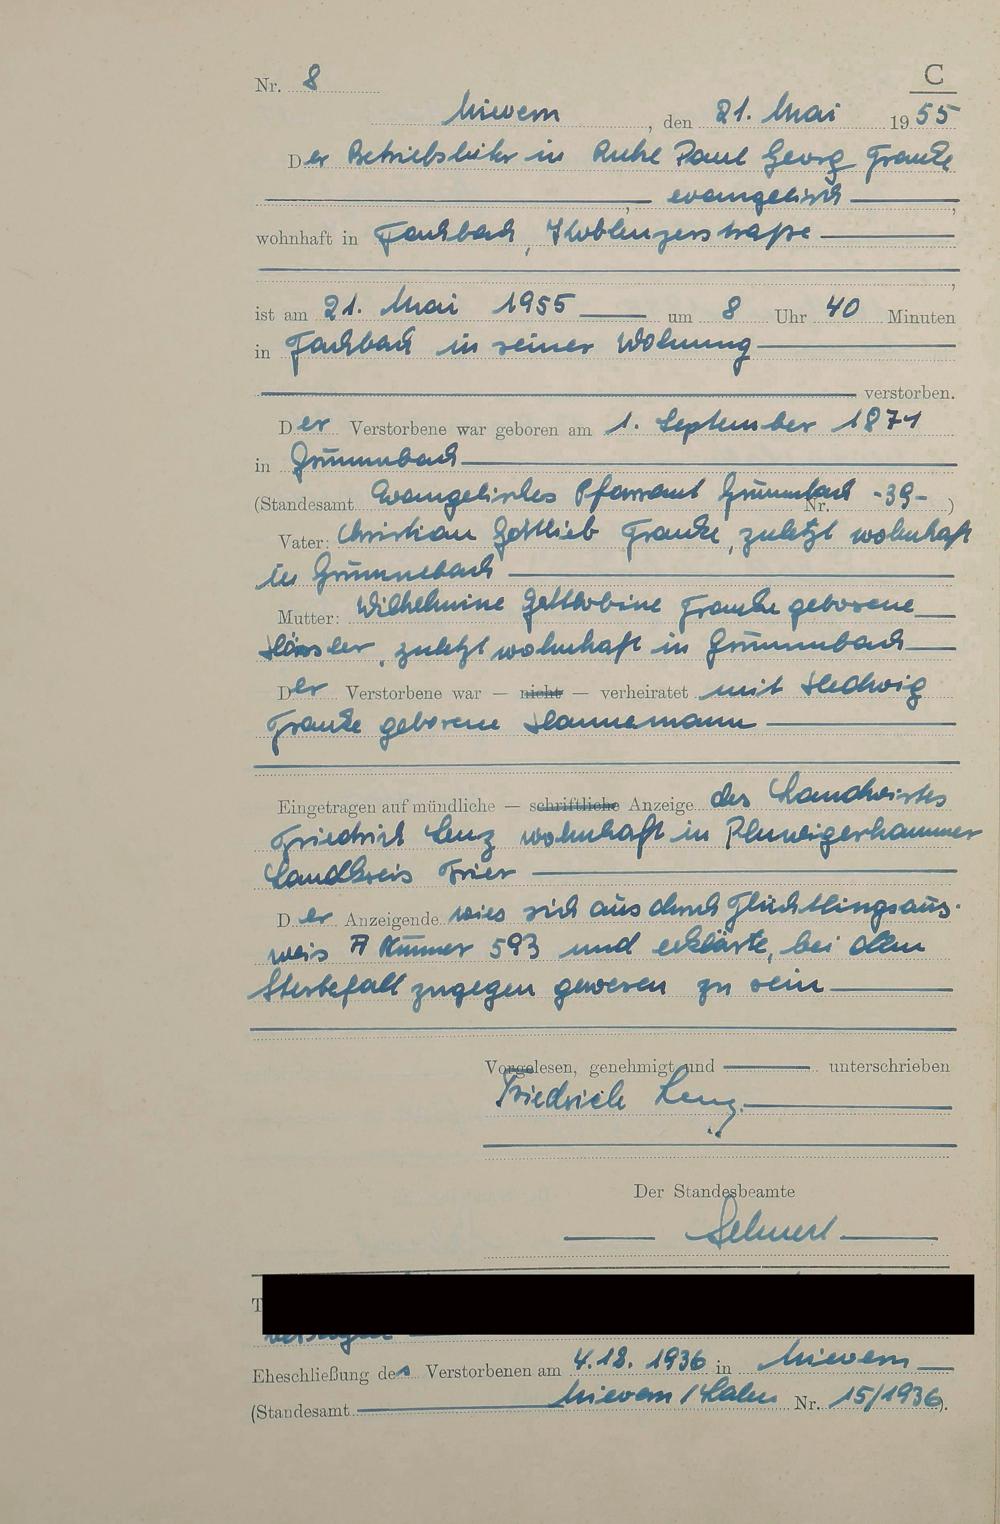 C
Nr. 8
Mievern, den 21. Mai 1955
Der Betriebsleiter in Ruhe Paul Georg Franke
, evangelisch,
wohnhaft in Fachbach, Koblenzerstraße
,
ist am 21. Mai 1955 um 8 Uhr 40 Minuten
in Fachbach in seiner Wohnung
verstorben.
Der Verstorbene war geboren am 1. September 1871
in Grumbach
(Standesamt Evangelisches Pfarramt Grumbach Nr. -39-)
Vater: Christian Gottlieb Franke, zuletzt wohnhaft
in Grumbach
Mutter: Wilhelmine Franke geborene
, zuletzt wohnhaft in Grumbach
Der Verstorbene war — nicht — verheiratet mit Hedwig
Franke geborene Hannemann
Eingetragen auf mündliche — schriftliche Anzeige des Landwirtes
Friedrich Lenz wohnhaft in Pluwigerhammer
Landkreis Trier
Der Anzeigende wies sich aus durch Flüchtlingsaus-
weis A Nummer 593 und erklärte, bei dem
Sterbefall zugegen gewesen zu sein
Vorgelesen, genehmigt und unterschrieben
Friedrich Lenz
Der Standesbeamte
Eheschließung des Verstorbenen am 4.12.1936 in Mievern
(Standesamt Mievern/Lahn Nr. 15/1936).